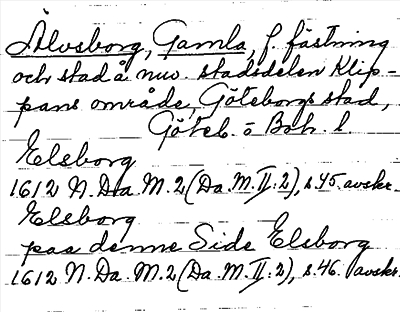 Älvsborg, Gamla, f. fästning
och stad å nuv. stadsdelen Klip-
pans område, Göteborgs stad,
Göteb. o Boh. l
Elsborg
1612 N. Da. M. 2 (Da. M. II. 2), s. 45. avskr.
Elsborg
paa denne Side Elsborg
1612 N. Da. M. 2 (Da. M. II. 2), s. 46. avskr.